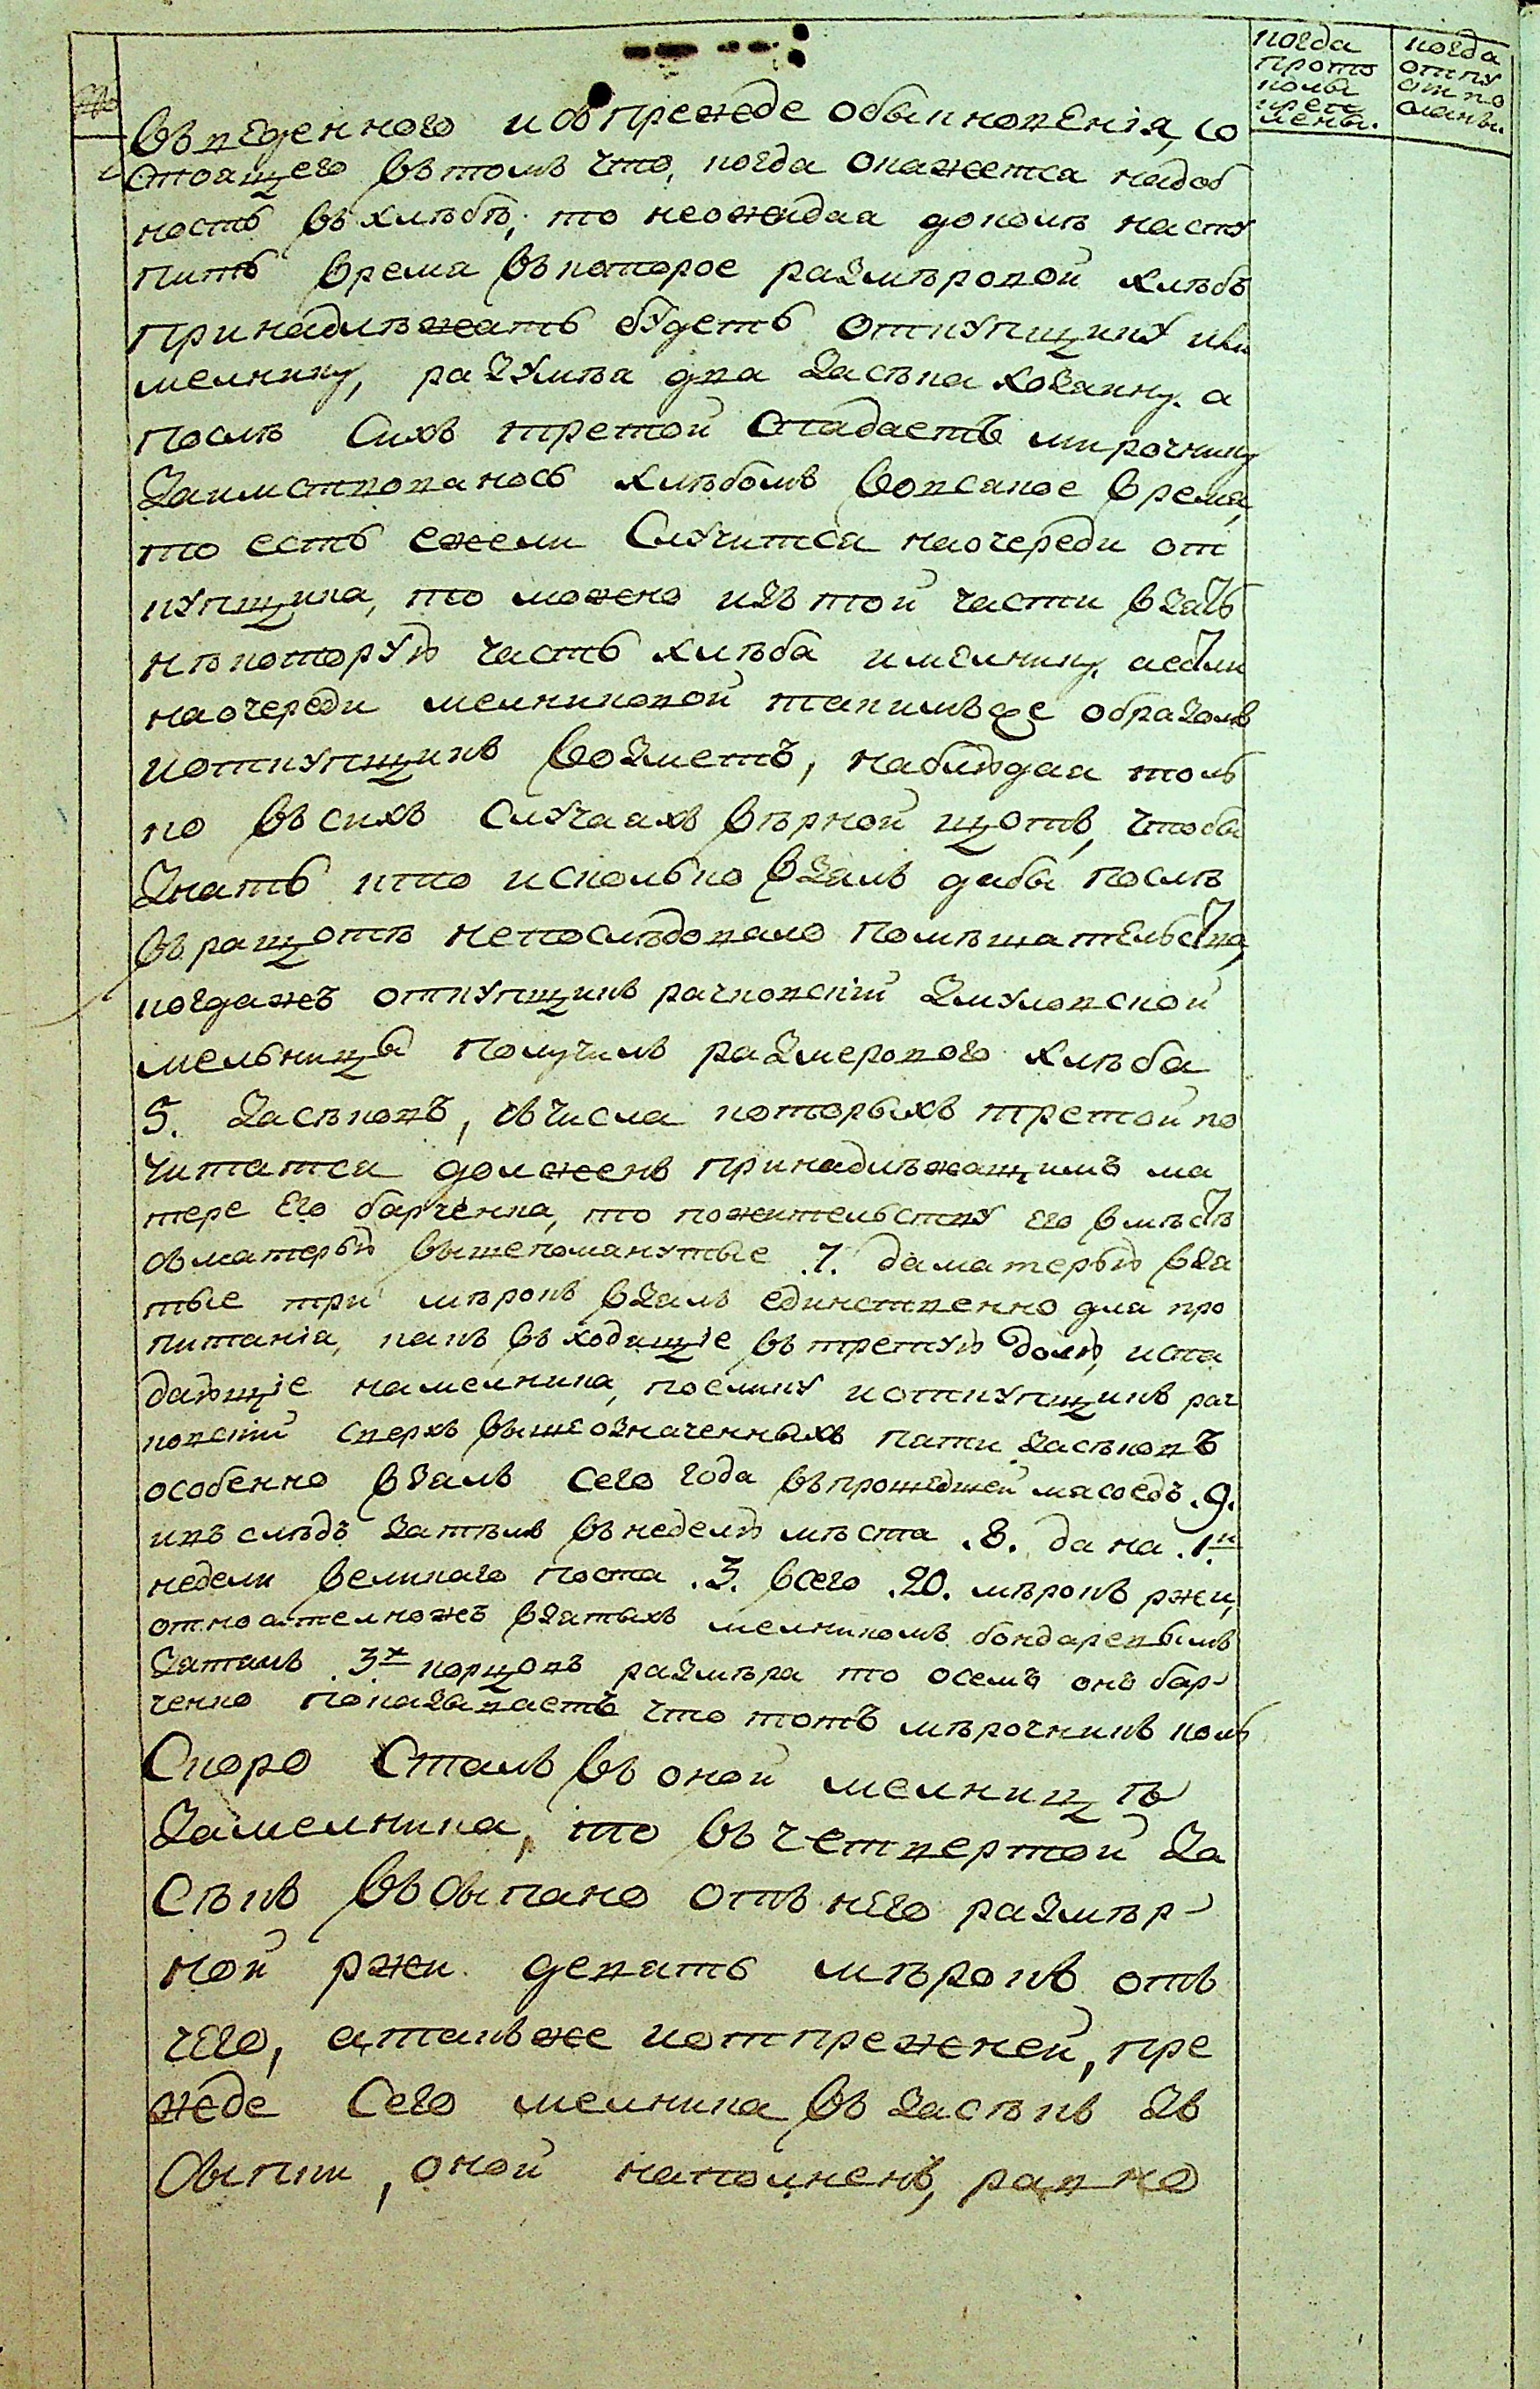 когда
прото
колы
креп
лены.
когда
отпу
ски по
сланы.
№
въведенного изъпрежде обыкновенія, со
стоящего въ томъ что, когда окажется надоб
ность въ хлѣбѣ, то неожидая доколь насту
питъ время въ которое размѣровой хлѣбъ
принадлѣжать будетъ откупщику или
мелнику, разумѣя два засѣка хозаину. а
послѣ сихъ третой спадаетъ мирочнику
заимствовалось хлѣбомъ вовсякое время,
то есть ежели случится наочереди от
купщика, то можно изъ той части взять
нѣкоторую часть хлѣба имелнику. аестли
наочереди мелниковой такимъже образомъ
иоткупщикъ возметъ, наблюдая толь
ко въ сихъ случаяхъ вѣрной щотъ, чтобы
знать кто исколько взялъ дабы послѣ
въ ращотѣ непослѣдовало помѣшательства,
когдажъ откупщикъ рачковскій змуловской
мельницы получилъ размерового хлѣба
5. засѣковъ, съчисла которыхъ третой по
читатся долженъ принадлѣжащимъ ма
тере его барченка, то пожительству его вмѣстѣ
съматерью вышепомянутые .7. даматерью взя
тые три мѣрокъ взялъ единственно для про
питанія, какъ въ ходящіе въ третую долю, испа
дающіе намелника, поелику иоткупщикъ рач
ковскій сверхъ вышеозначенныхъ пяти засѣковъ
особенно взялъ сего года въпрошедшей мясоедъ .9.
ивъ слѣдъ затѣмъ въ неделю мѣста .8. да на .1.й
недели великаго поста .3. всего .20. мѣрокъ ржи,
относителножъ взятыхъ мелникомъ бондаревымъ
затямъ 3х корцовъ размѣра то осемъ онъ бар-
ченко показываетъ что тотъ мѣрочникъ коль
скоро сталъ въ оной мелницѣ
замелника, то въ четвертой за
сѣкъ въсыпано отъ него размѣр-
ной ржи девять мѣрокъ отъ
чего, атакъже иотпрежней, пре
жде сего мелника въ засѣкъ зъ
сыпки, оной наполненъ, равно